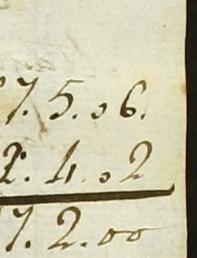 7.5.06.
2.4.02
7.2.00